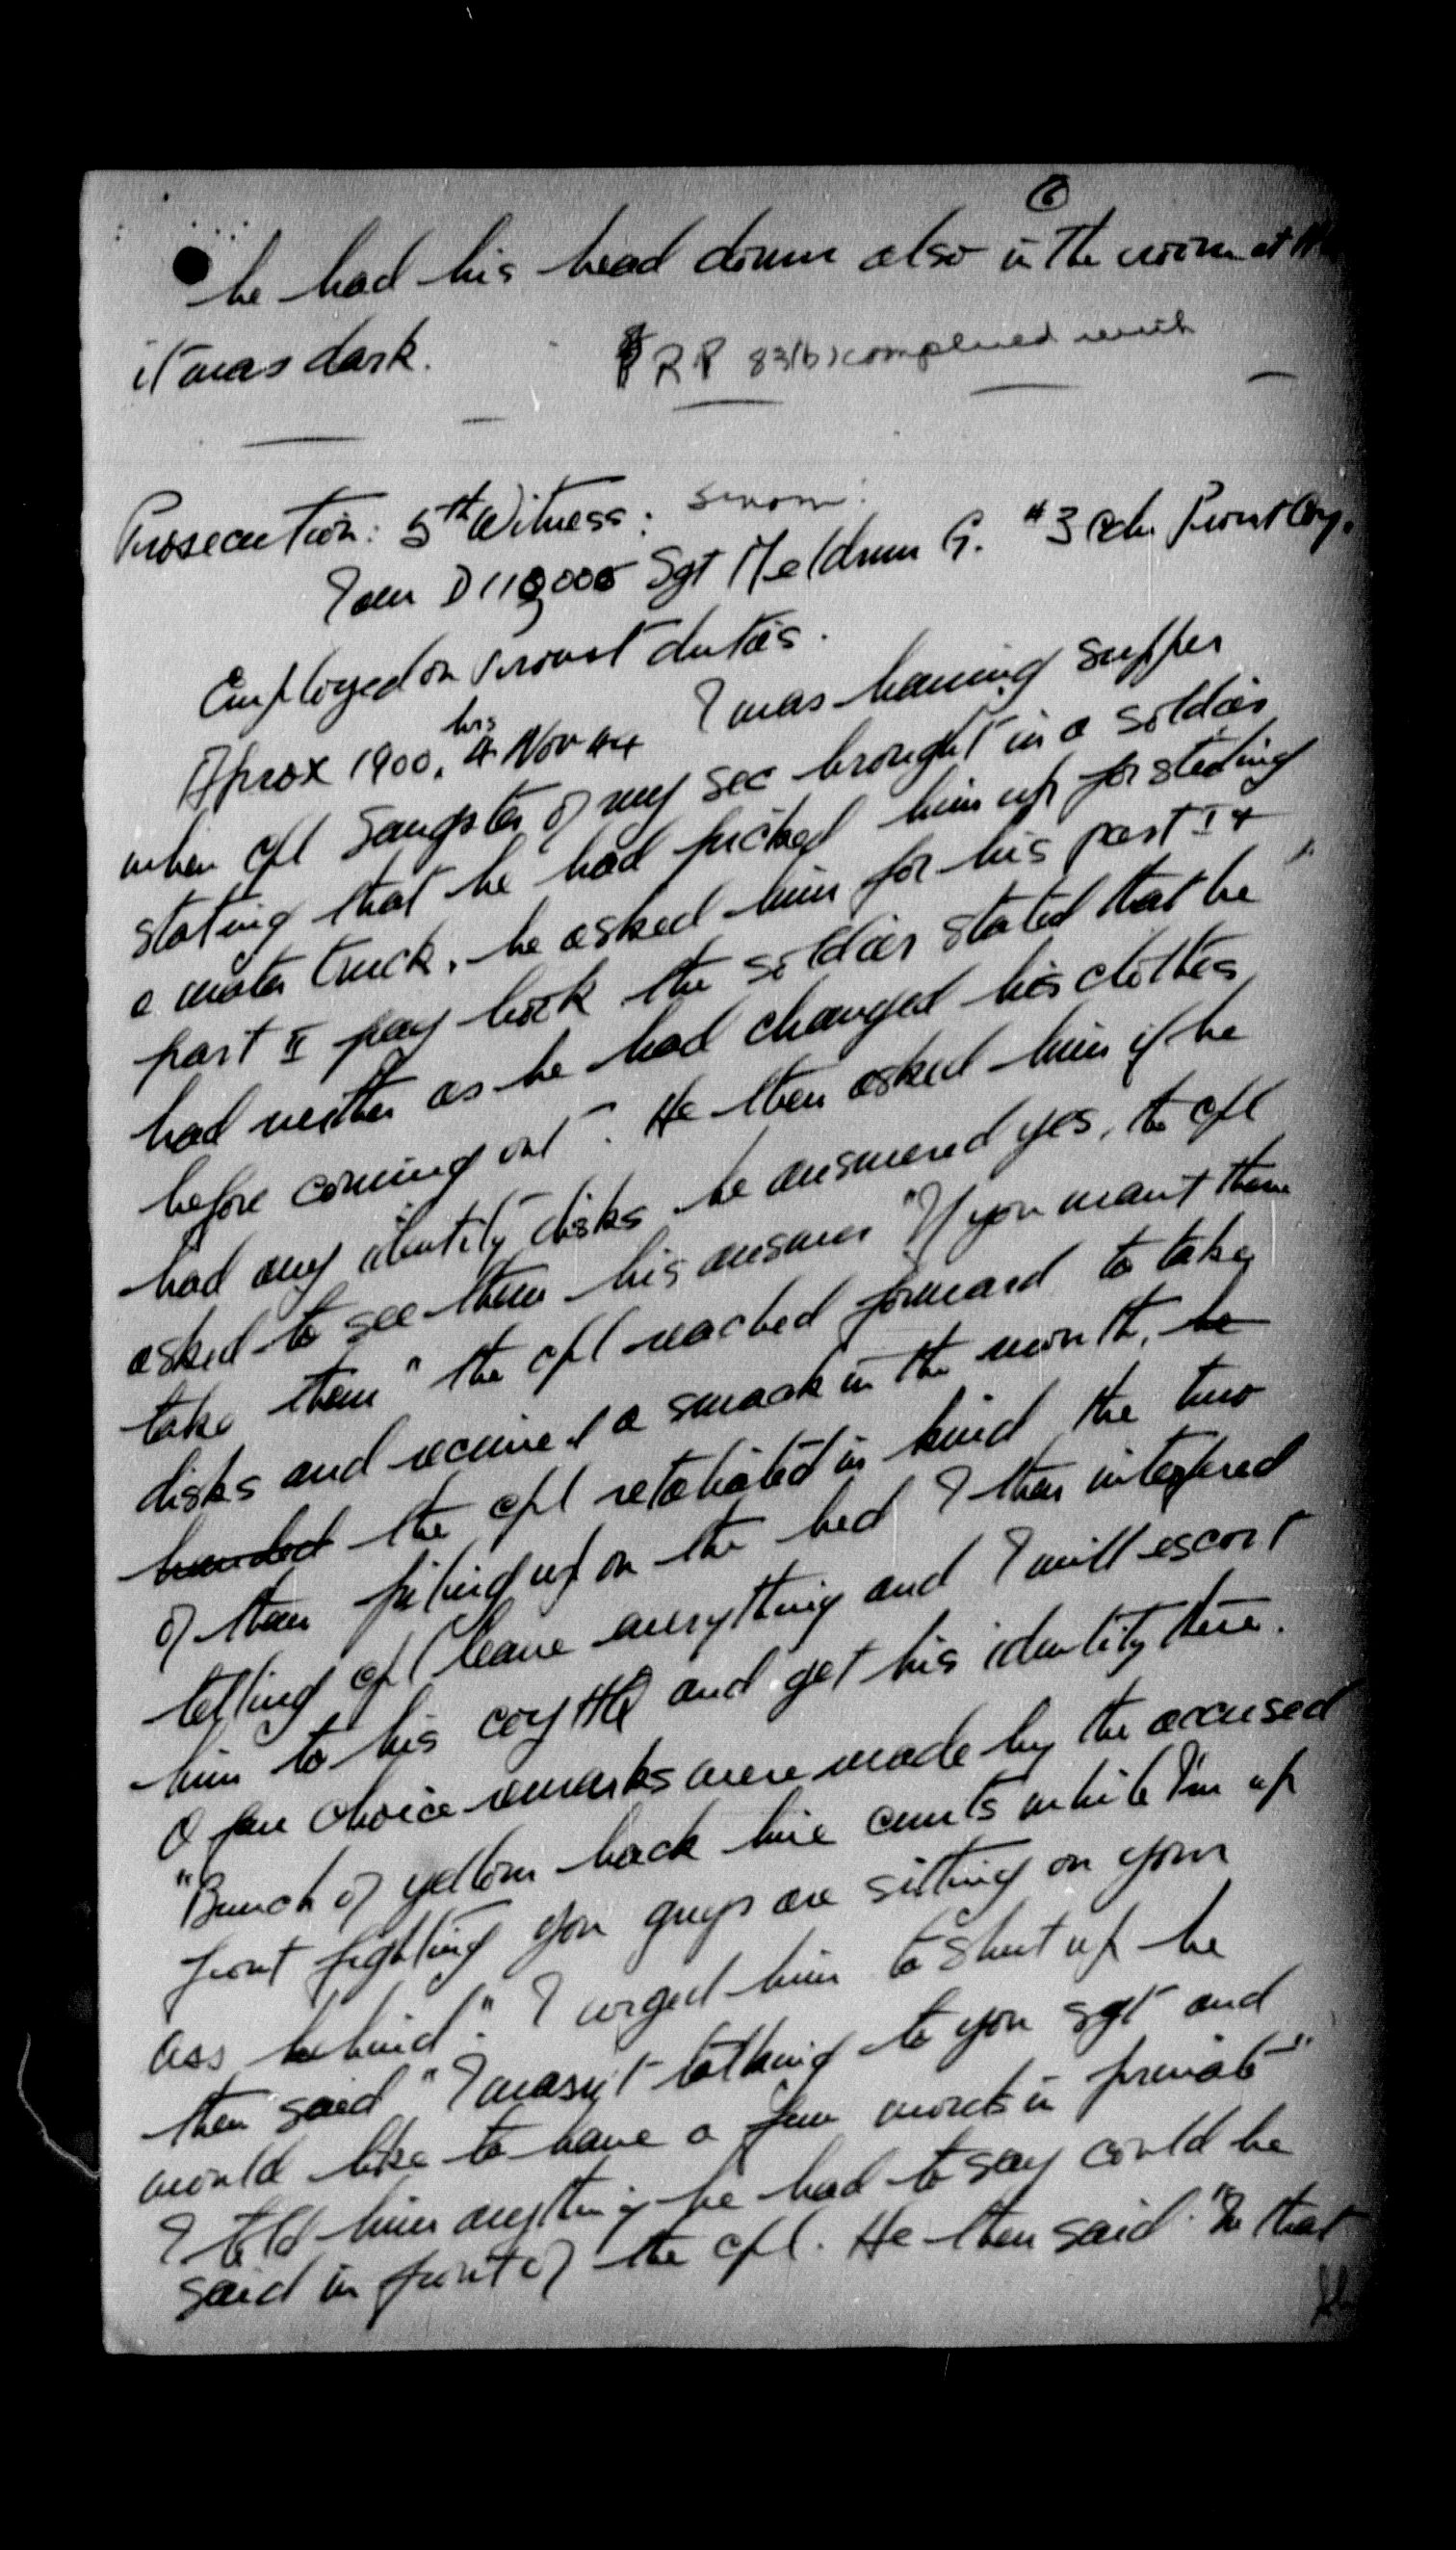 6
he had his head down also in the room at
it was dark.
RP 83(b) complied with
Prosecution: 5th Witness: sworn:
I am D 118,006 Sgt Meldrum G. #3 Cdn Provost Coy.
Employed on Provost duties.
Aprox 1900 hrs 4 Nov 44 I was having supper
when cpl Sangster of my sec brought in a soldier
stating that he had picked him up for stealing
a water truck, he asked him for his part I +
part II pay book the soldier stated that he
had neither as he had changed his clothes
before coming out. He then asked him if he
had any identity disks he answered yes, the cpl
asked to see them his answer "If you want them
take them" the cpl reached forward to take
disks and received a smack in the mouth, he
handed the cpl retaliated in kind the two
of them piling up on the bed I then interfered
telling cpl leave everything and I will escort
him to his coy HQ and get his identity there.
A few choice remarks were made by the accused
"Bunch of yellow back line cunts while I'm up
front fighting you guys are sitting on your
ass behind." I urged him to shut up he
then said "I wasn't talking to you sgt and
would like to have a few words in private"
I told him anything he had to say could be
said in front of the cpl. He then said "In that